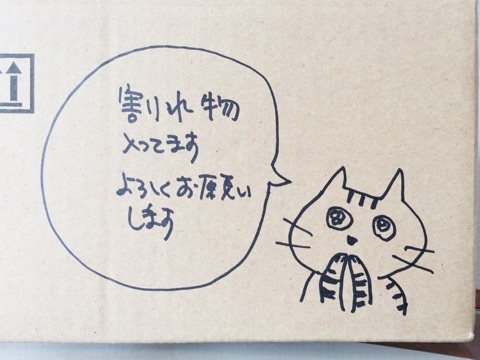 割りれ物
入ってます
よろしくお願い
します